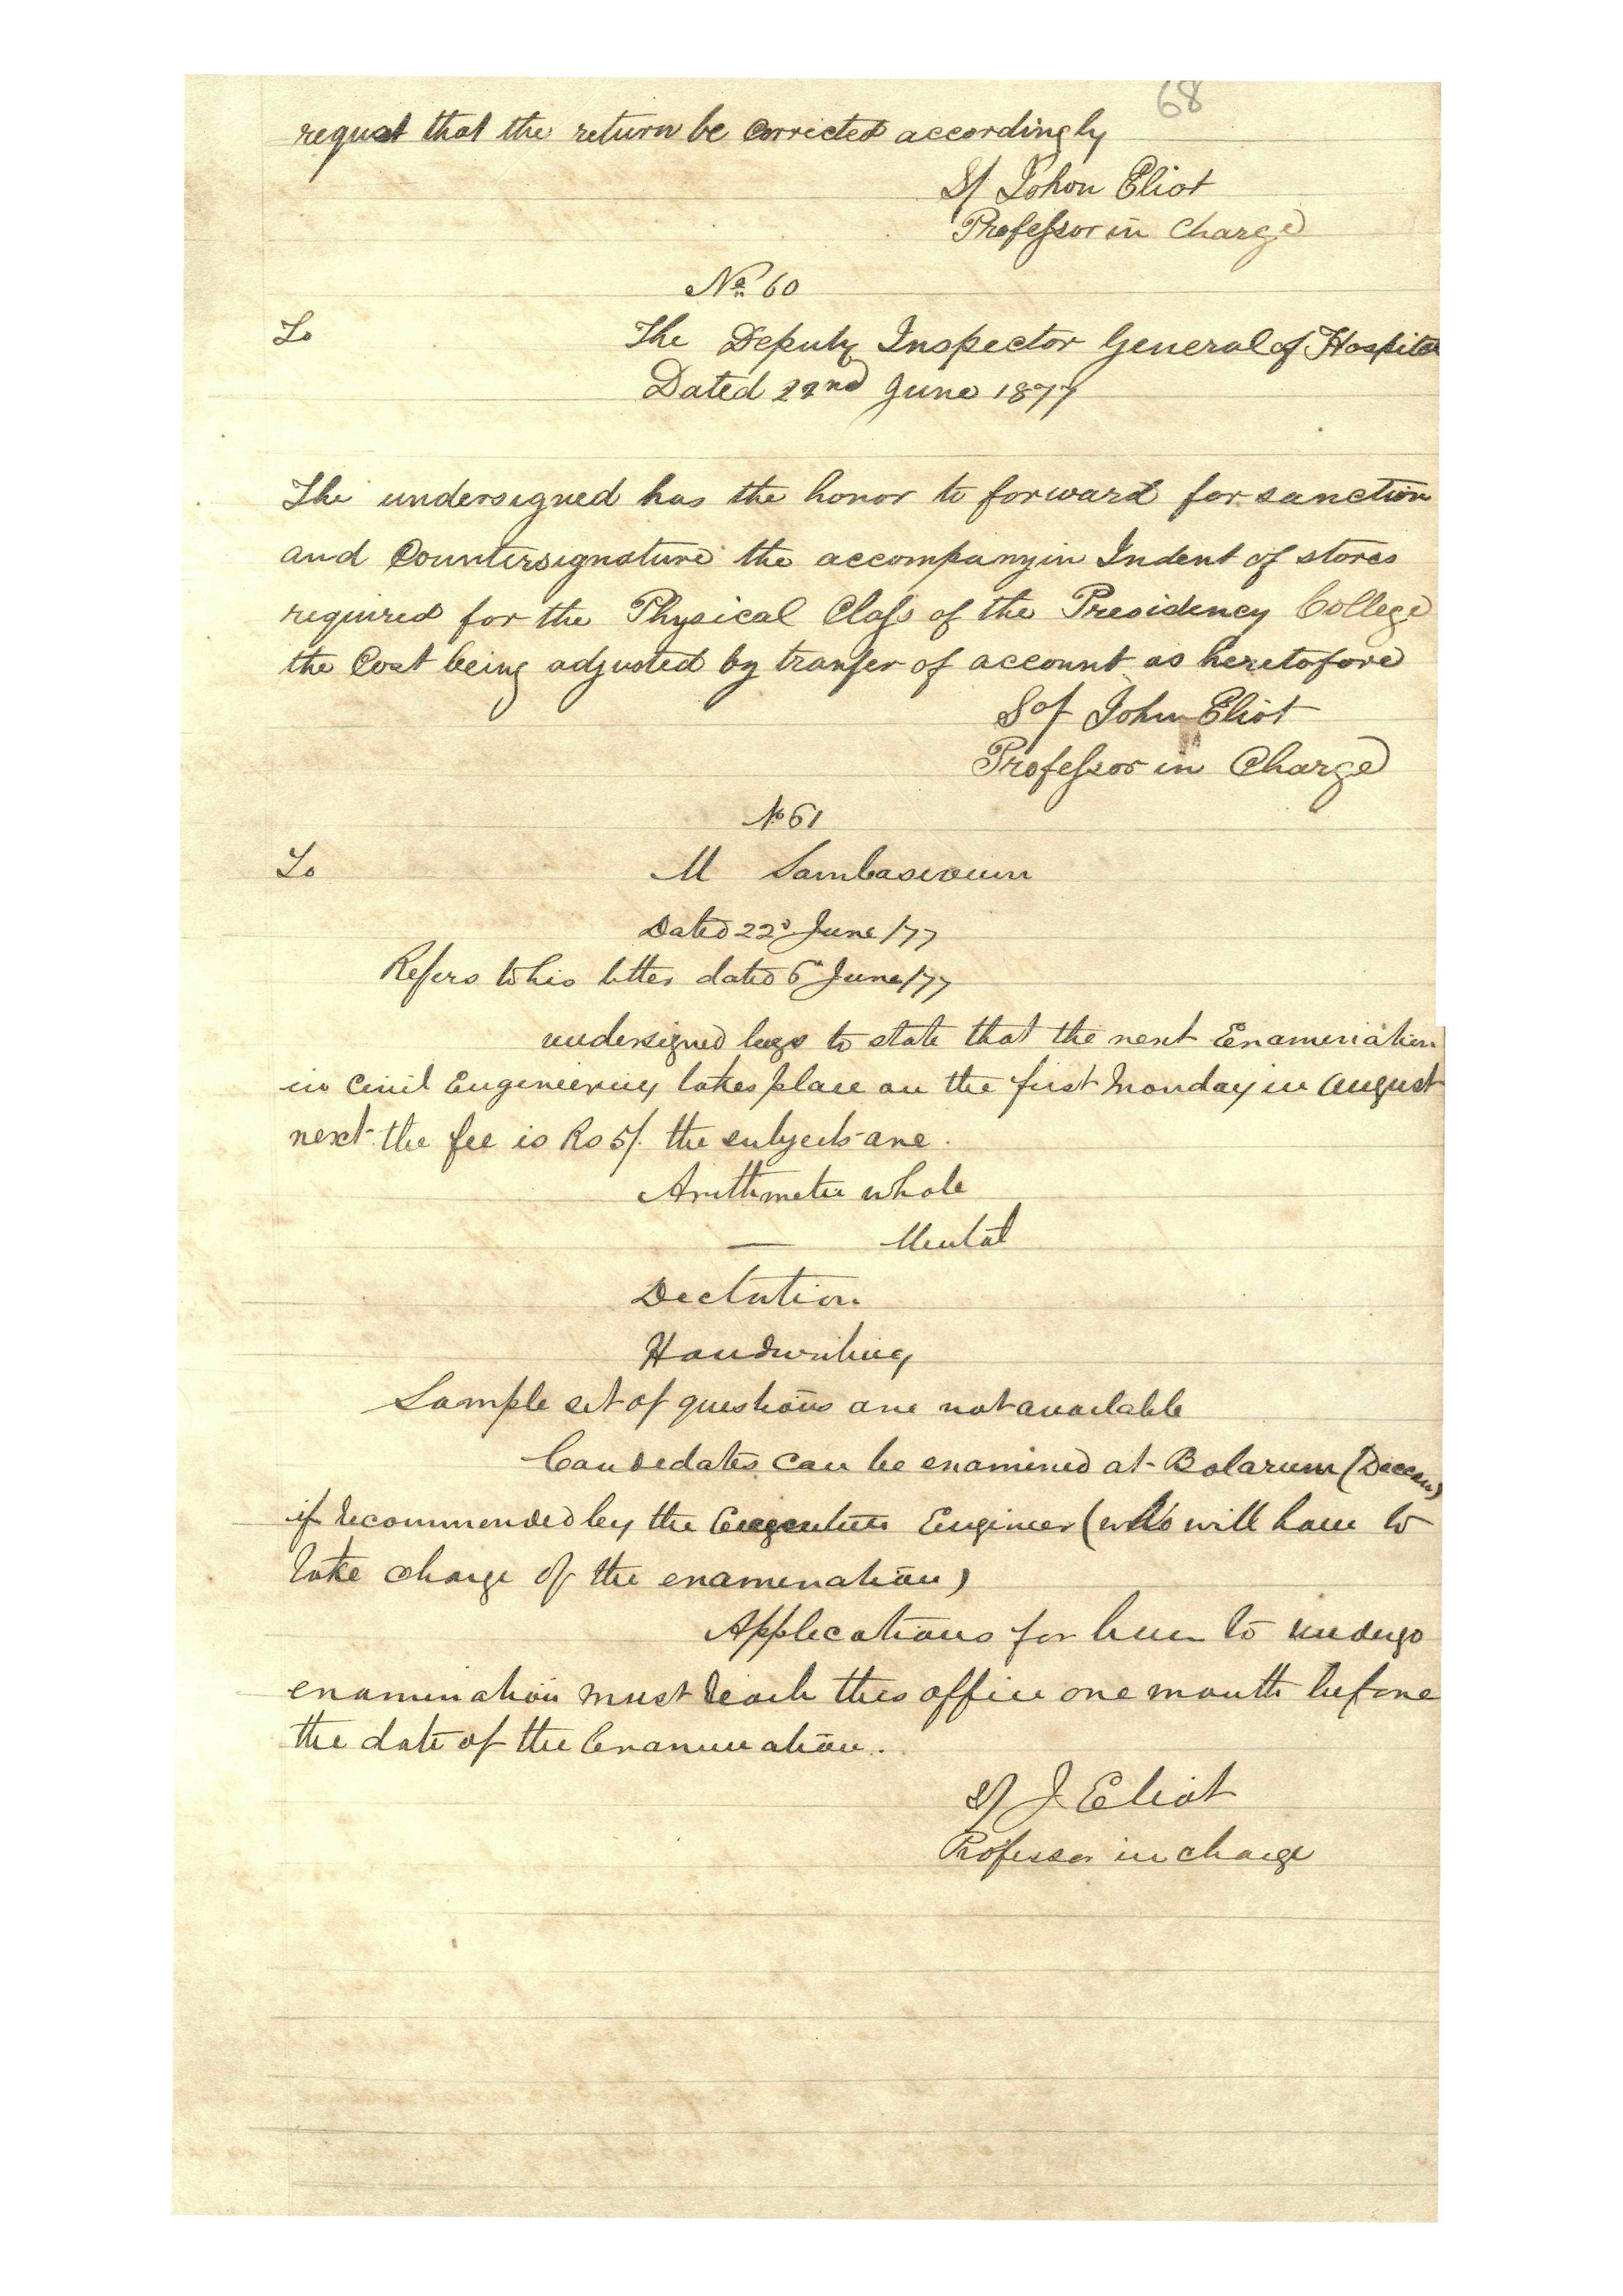 68
request that the return be corrected accordingly
S/ John Eliot
Professor in Charge
No. 60
To The Deputy Inspector General of Hospital
Dated 22nd June 1877
The undersigned has the honor to forward for sanction
and Countersignature the accompanyin Indent of stores
required for the Physical Class of the Presidency College
the Cost being adjusted by tranfer of account as heretofore
Sd/ John Eliot
Professor in Charge
No 61
To M Sambasivum
Dated 22d June /77
Refers to his letter dated 6th June /77
undersigned begs to state that the next Examination
in Civil Engineering takes place on the first Monday in August
next the fee is Rs 5/. the subjects are.
Arithmetic whole
— Mental
Dictation
Handwriting
Sample set of questions are not available
Candidates can be examined at Bolarum (Deccan)
if recommended by the Executive Engineer (who will have to
take charge of the examination)
Applications for him to undergo
examination must reach this office one month before
the date of the Examination.
S/ J Eliot
Professor in charge